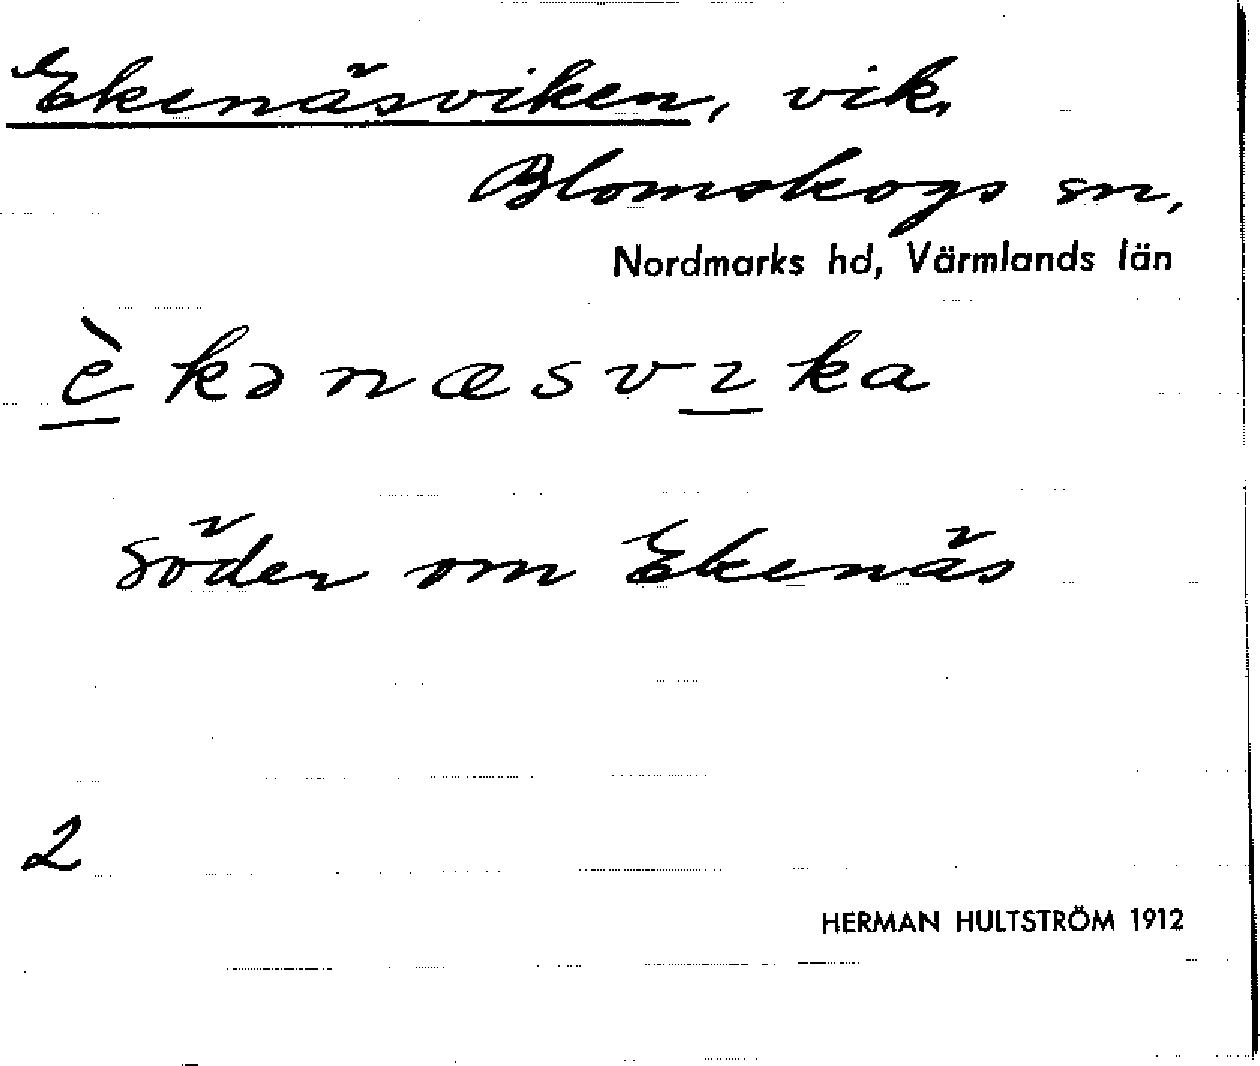 Ekenäsviken, vik,
Blomskogs sn,
Nordmarks hd, Värmlands län
è kə næsvɪka
söder om Ekenäs
2
HERMAN HULTSTRÖM 1912